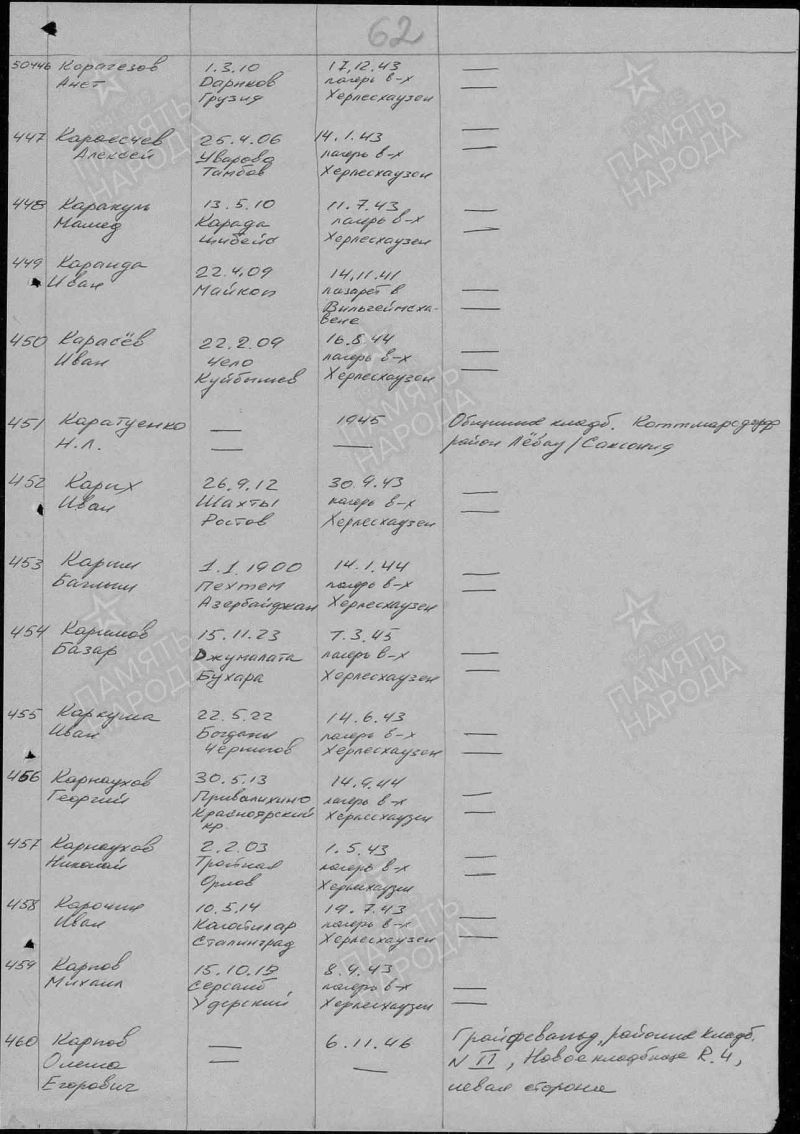 62
50446 Карагезов 1.3.10 17.12.43 —
Анет Дариков лагерь в-х —
Грузия Херлесхаузен
447 Караесчев 25.4.06 14.1.43 —
Алексей Уварово лагерь в-х —
Тамбов Херлесхаузен
448 Каракуль 13.5.10 11.7.43 —
Мамед Карада лагерь в-х —
Шибейс Херлесхаузен
449 Каранда 22.4.09 14.11.41
Иван Майкоп лазарет в —
Вильгеймсха- —
вене
450 Карасёв 22.2.09 16.8.44 —
Иван Чело лагерь в-х —
Куйбышев Херлесхаузен
451 Каратуенко — 1945 Общинное кладб. Коттмарсдорф
Н.Л. — — район Лёбау/Саксония
452 Карих 26.9.12 30.9.43 —
Иван Шахты лагерь в-х —
Ростов Херлесхаузен
453 Карим 1.1.1900 14.1.44 —
Баглыш Пехтем лагерь в-х —
Азербайджан Херлесхаузен
454 Каримов 15.11.23 7.3.45
Базар Джумалата лагерь в-х —
Бухара Херлесхаузен —
455 Каркуша 22.5.22 14.6.43
Иван Богданы лагерь в-х —
Чернигов Херлесхаузен —
456 Карнаухов 30.5.13 14.9.44
Георгий Привалихино лагерь в-х —
Красноярский Херлесхаузен —
кр.
457 Карнаухов 2.2.03 1.5.43
Николай Тройная лагерь в-х —
Орлов Херлесхаузен —
458 Карочин 10.5.14 19.7.43
Иван Кагатилар лагерь в-х —
Сталинград Херлесхаузен —
459 Карпов 15.10.19 8.4.43
Михаил лагерь в-х —
Удерский Херлесхаузен —
460 Карпов — 6.11.46 Грайфсвальд, районное кладб.
Олеша — — N II, Новое кладбище R.4,
Егорович левая сторона
ПАМЯТЬ НАРОДА
ПАМЯТЬ НАРОДА
ПАМЯТЬ НАРОДА
ПАМЯТЬ НАРОДА
ПАМЯТЬ НАРОДА
ПАМЯТЬ НАРОДА